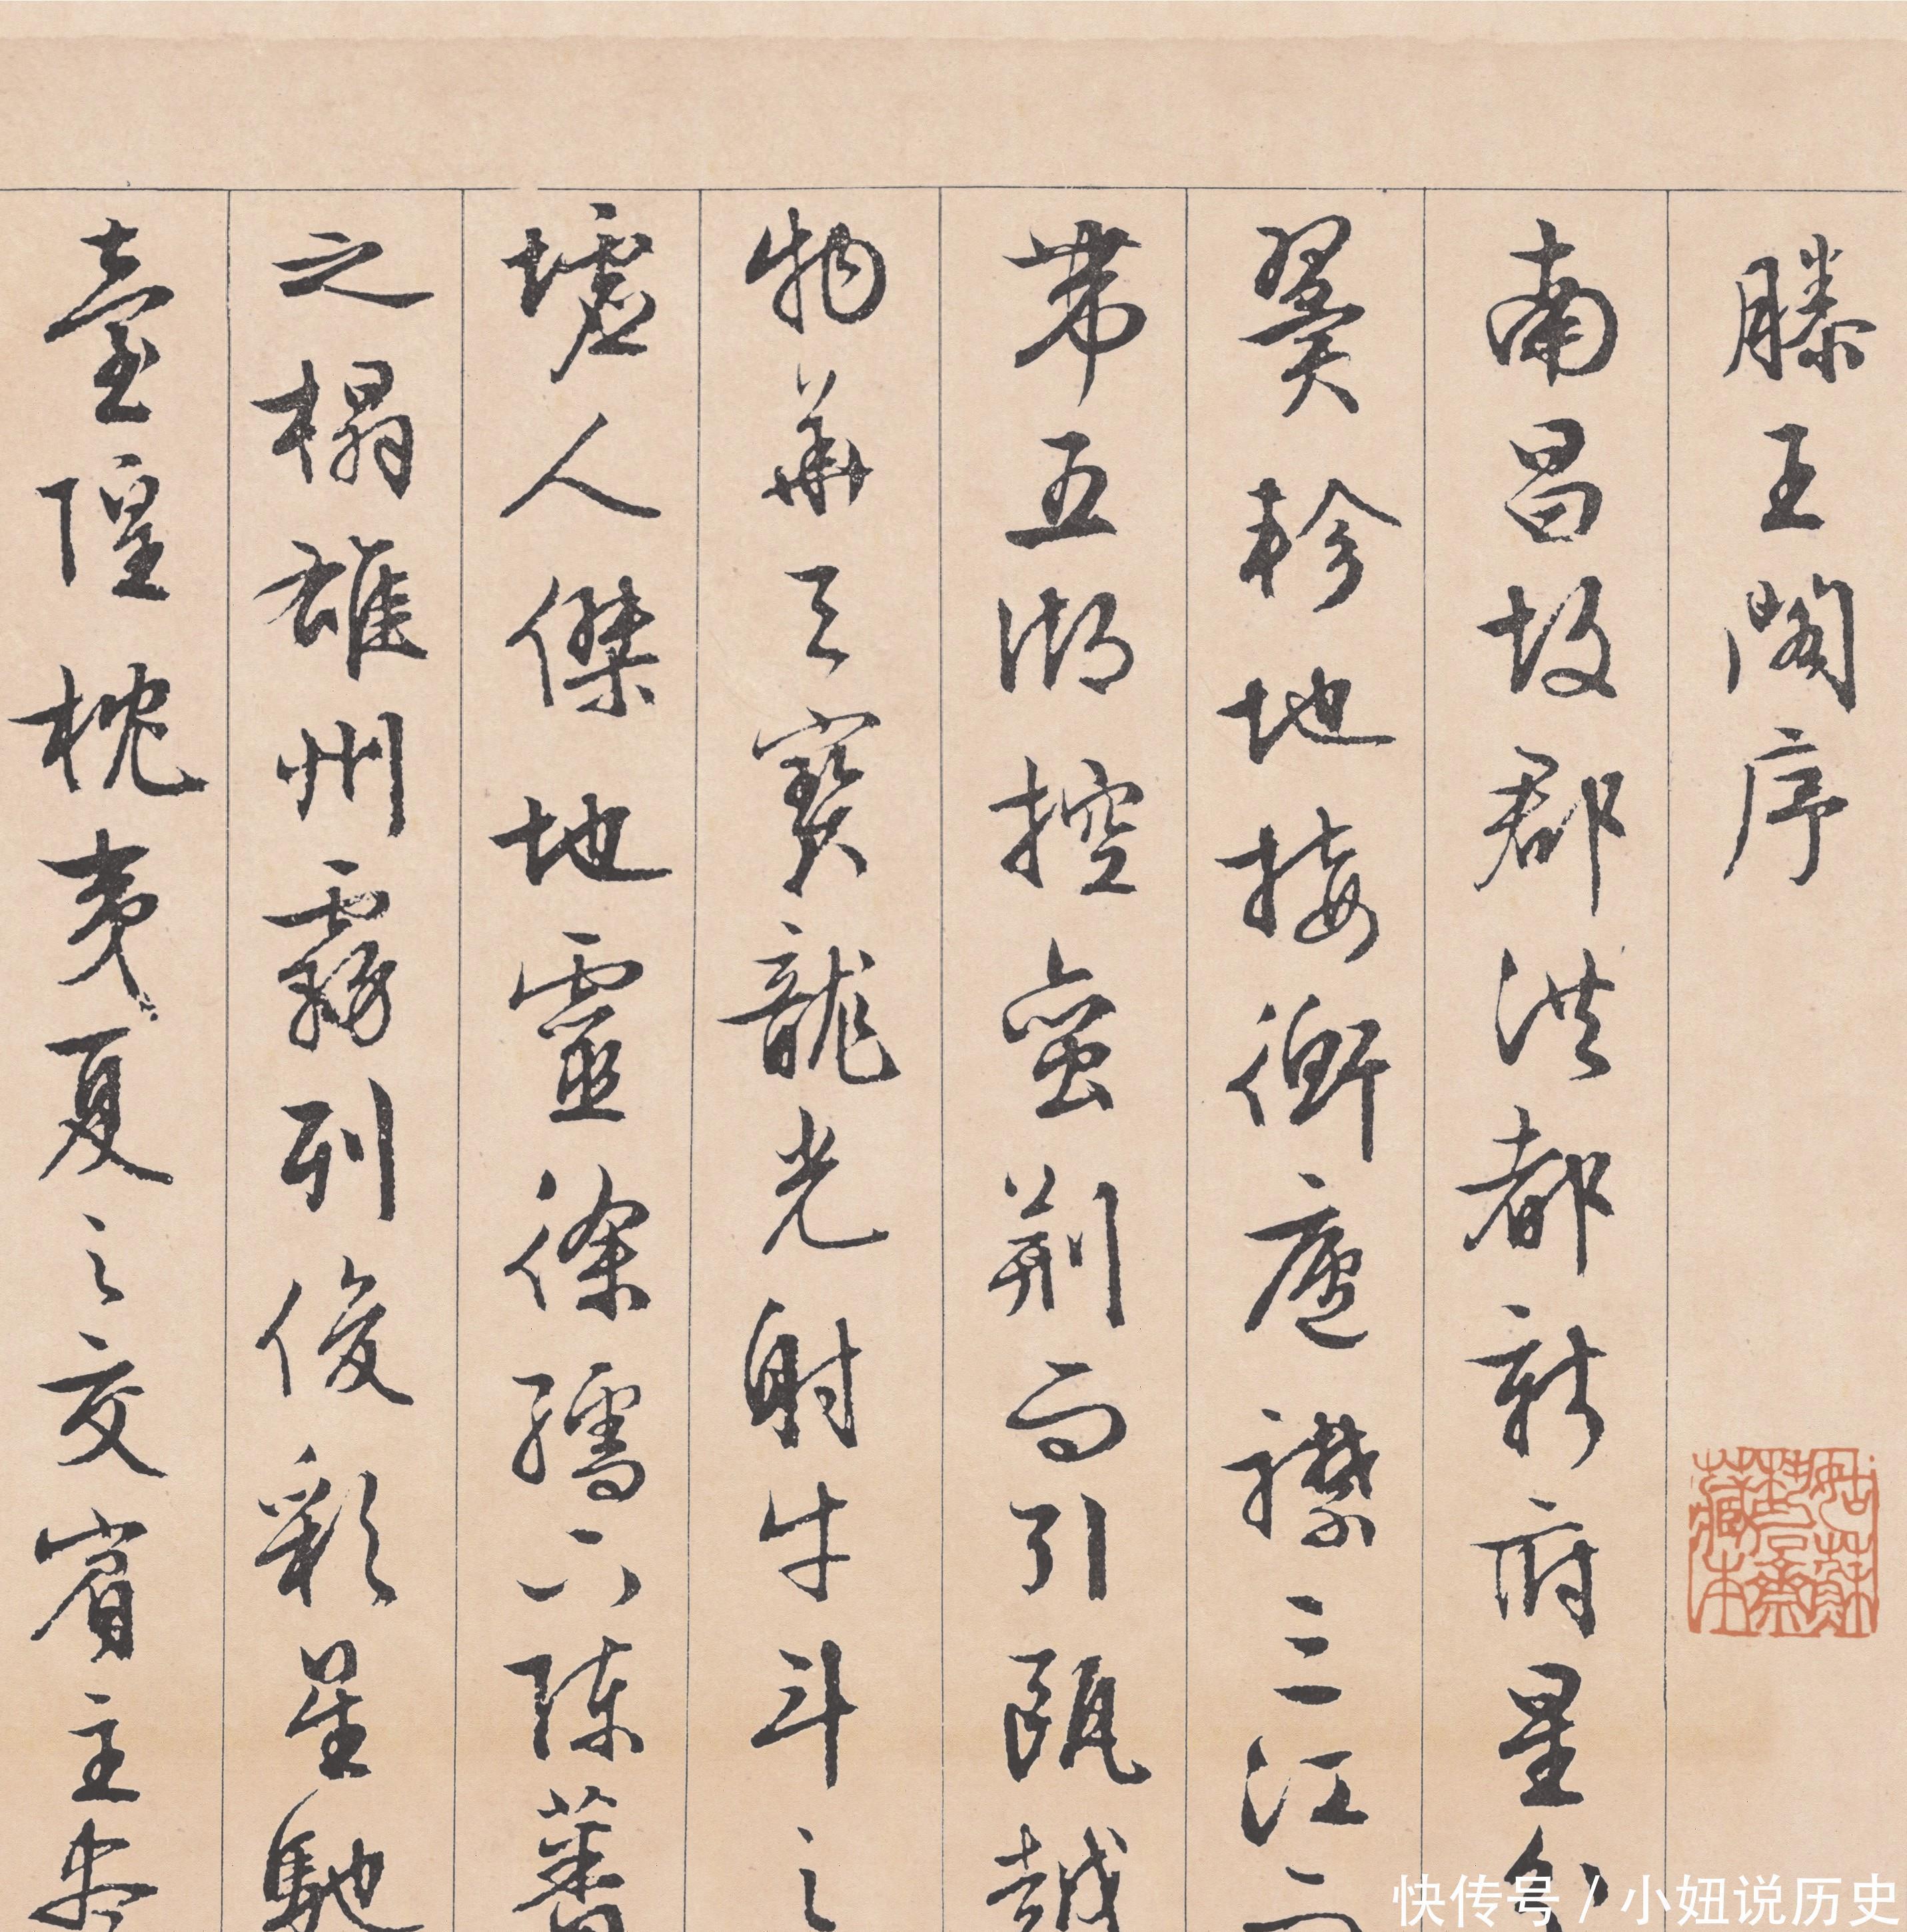 滕王閣序
南昌故郡洪都新府星分
翼軫地接衡廬襟三江而
帶五湖控蠻荊而引甌越
物華天寶龍光射牛斗之
墟人傑地靈徐孺下陳蕃
之榻雄州霧列俊彩星馳
臺隍枕夷夏之交賓主盡
姑蘇
齋
藏本
快传号 / 小妞说历史